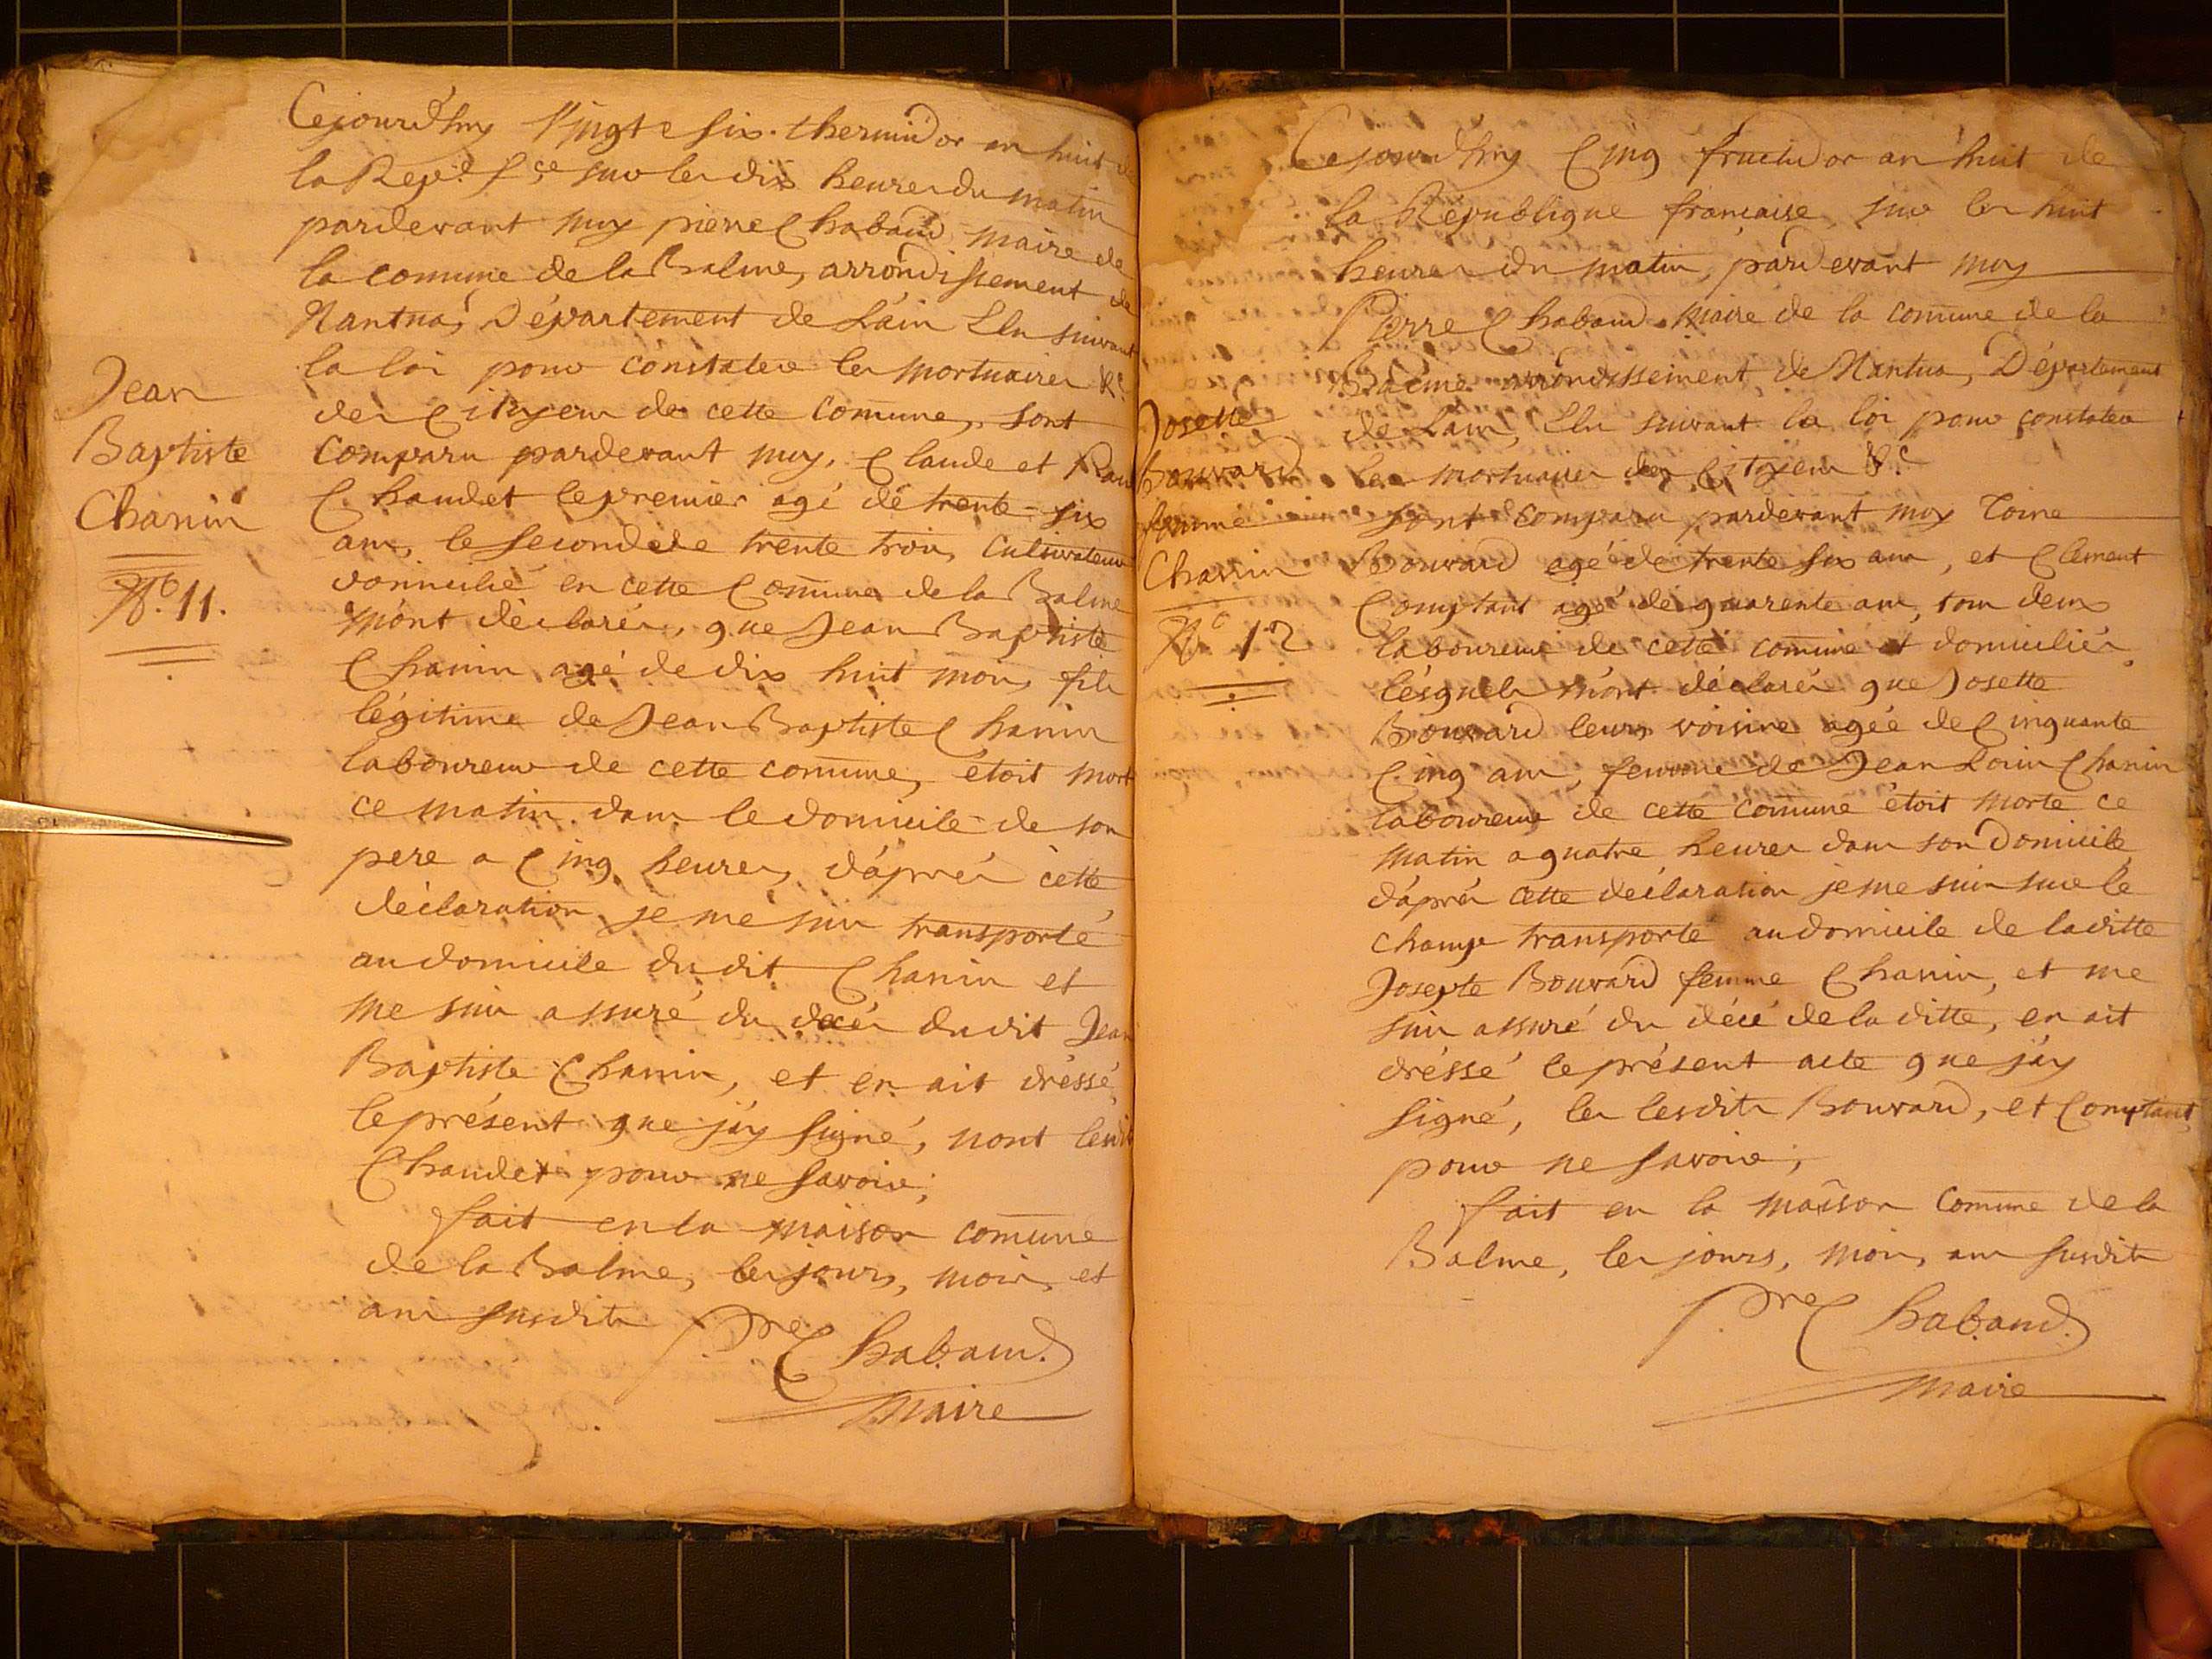 Cejourd'huy Vingt e six thermidor an huit de
la Rep.e f.se sur les dix heures du matin
pardevant moy pierre Chabaud maire de
la comune de la Balme, arrondissement de
Nantua, Département de L'ain Elu suivant
la loi pour constater les mortuaires &c
des Citoyens de cette comune, sont
comparu pardevant moy, Claude et
Chaudet le premier agé de trente six
ans, le second de trente trois, cultivateurs
domicilié en cette Comune de la Balme
m'ont déclarés, que Jean Baptiste
Chanin agé de dix huit mois, fils
légitime de Jean Baptiste Chanin
laboureur de cette comune, etoit mort
ce matin dans le domicile de son
pere a Cinq heures, d'aprés cette
déclaration je me suis transporté
au domicile du dit Chanin et
me suis assuré du decés dudit Jean
Baptiste Chanin, et en ait dréssé
le présent que j'ay signé, nont lesdit
Chaudet pour ne savoir;
fait en la maison comune
de la Balme, les jours, mois, et
ans susdits
P.re Chabaud.
Maire
Jean
Baptiste
Chanin
N.o 11.
Cejourd'huy Cinq fructidor an huit de
la République française, sur les huit
heures du matin, pardevant moy
Pierre Chabaud Maire de la comune de la
Balme arrondissement de Nantua, Département
de L'ain, Elu suivant la loi pour constater
les mortuaires des Citoyens &c
sont comparu pardevant moy Toine
Bouvard agé de trente six ans, et Clement
Comptant agé de quarente ans, tous deux
laboureurs de cette comune et domiciliés
lésquels m'ont déclarés que Josette
Bouvard leurs voisine agée de Cinquante
Cinq ans, femme de Jean Louis Chanin
laboureur de cette comune étoit morte ce
matin a quatre heures dans son Domicile
d'aprés cette déclaration je me suis sur le
champ transporté au domicile de laditte
Josepte Bouvard femme Chanin, et me
suis assuré du décé de la ditte, en ait
dréssé le présent acte que j'ay
signé, les lesdits Bouvard, et Comptant,
pour ne savoir,
fait en la maison Comune de la
Balme, les jours, mois, ans susdits
P.re Chabaud.
Maire
Josette
Bouvard
femme
Chanin
N.o 12